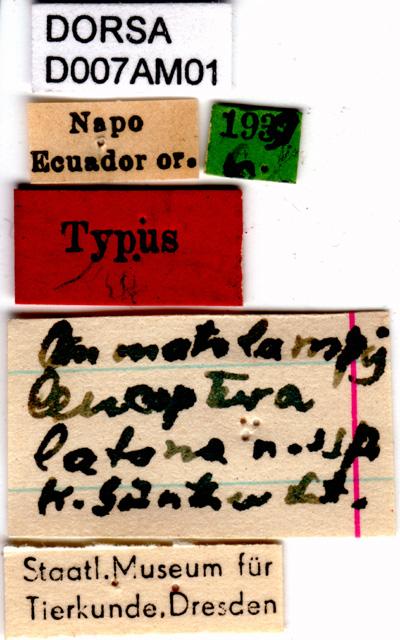 DORSA
D007AM01
Napo
Ecuador or.
1939
6.
Typus
Ommatolampis
leucoptera
latona n. ssp
K. Günther det.
Staatl. Museum für
Tierkunde, Dresden